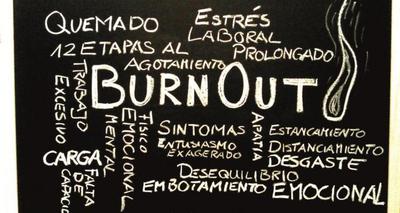 QUEMADO
ESTRÉS
LABORAL
PROLONGADO
12 ETAPAS AL
AGOTAMIENTO
BURNOUT
TRABAJO
EXCESIVO
MENTAL
EMOCIONAL
FÍSICO
SINTOMAS
ENTUSIASMO
EXAGERADO
APATÍA
ESTANCAMIENTO
DISTANCIAMIENTO
DESGASTE
CARGA
FALTA
DE
CAPACIDAD
DESEQUILIBRIO
EMBOTAMIENTO EMOCIONAL